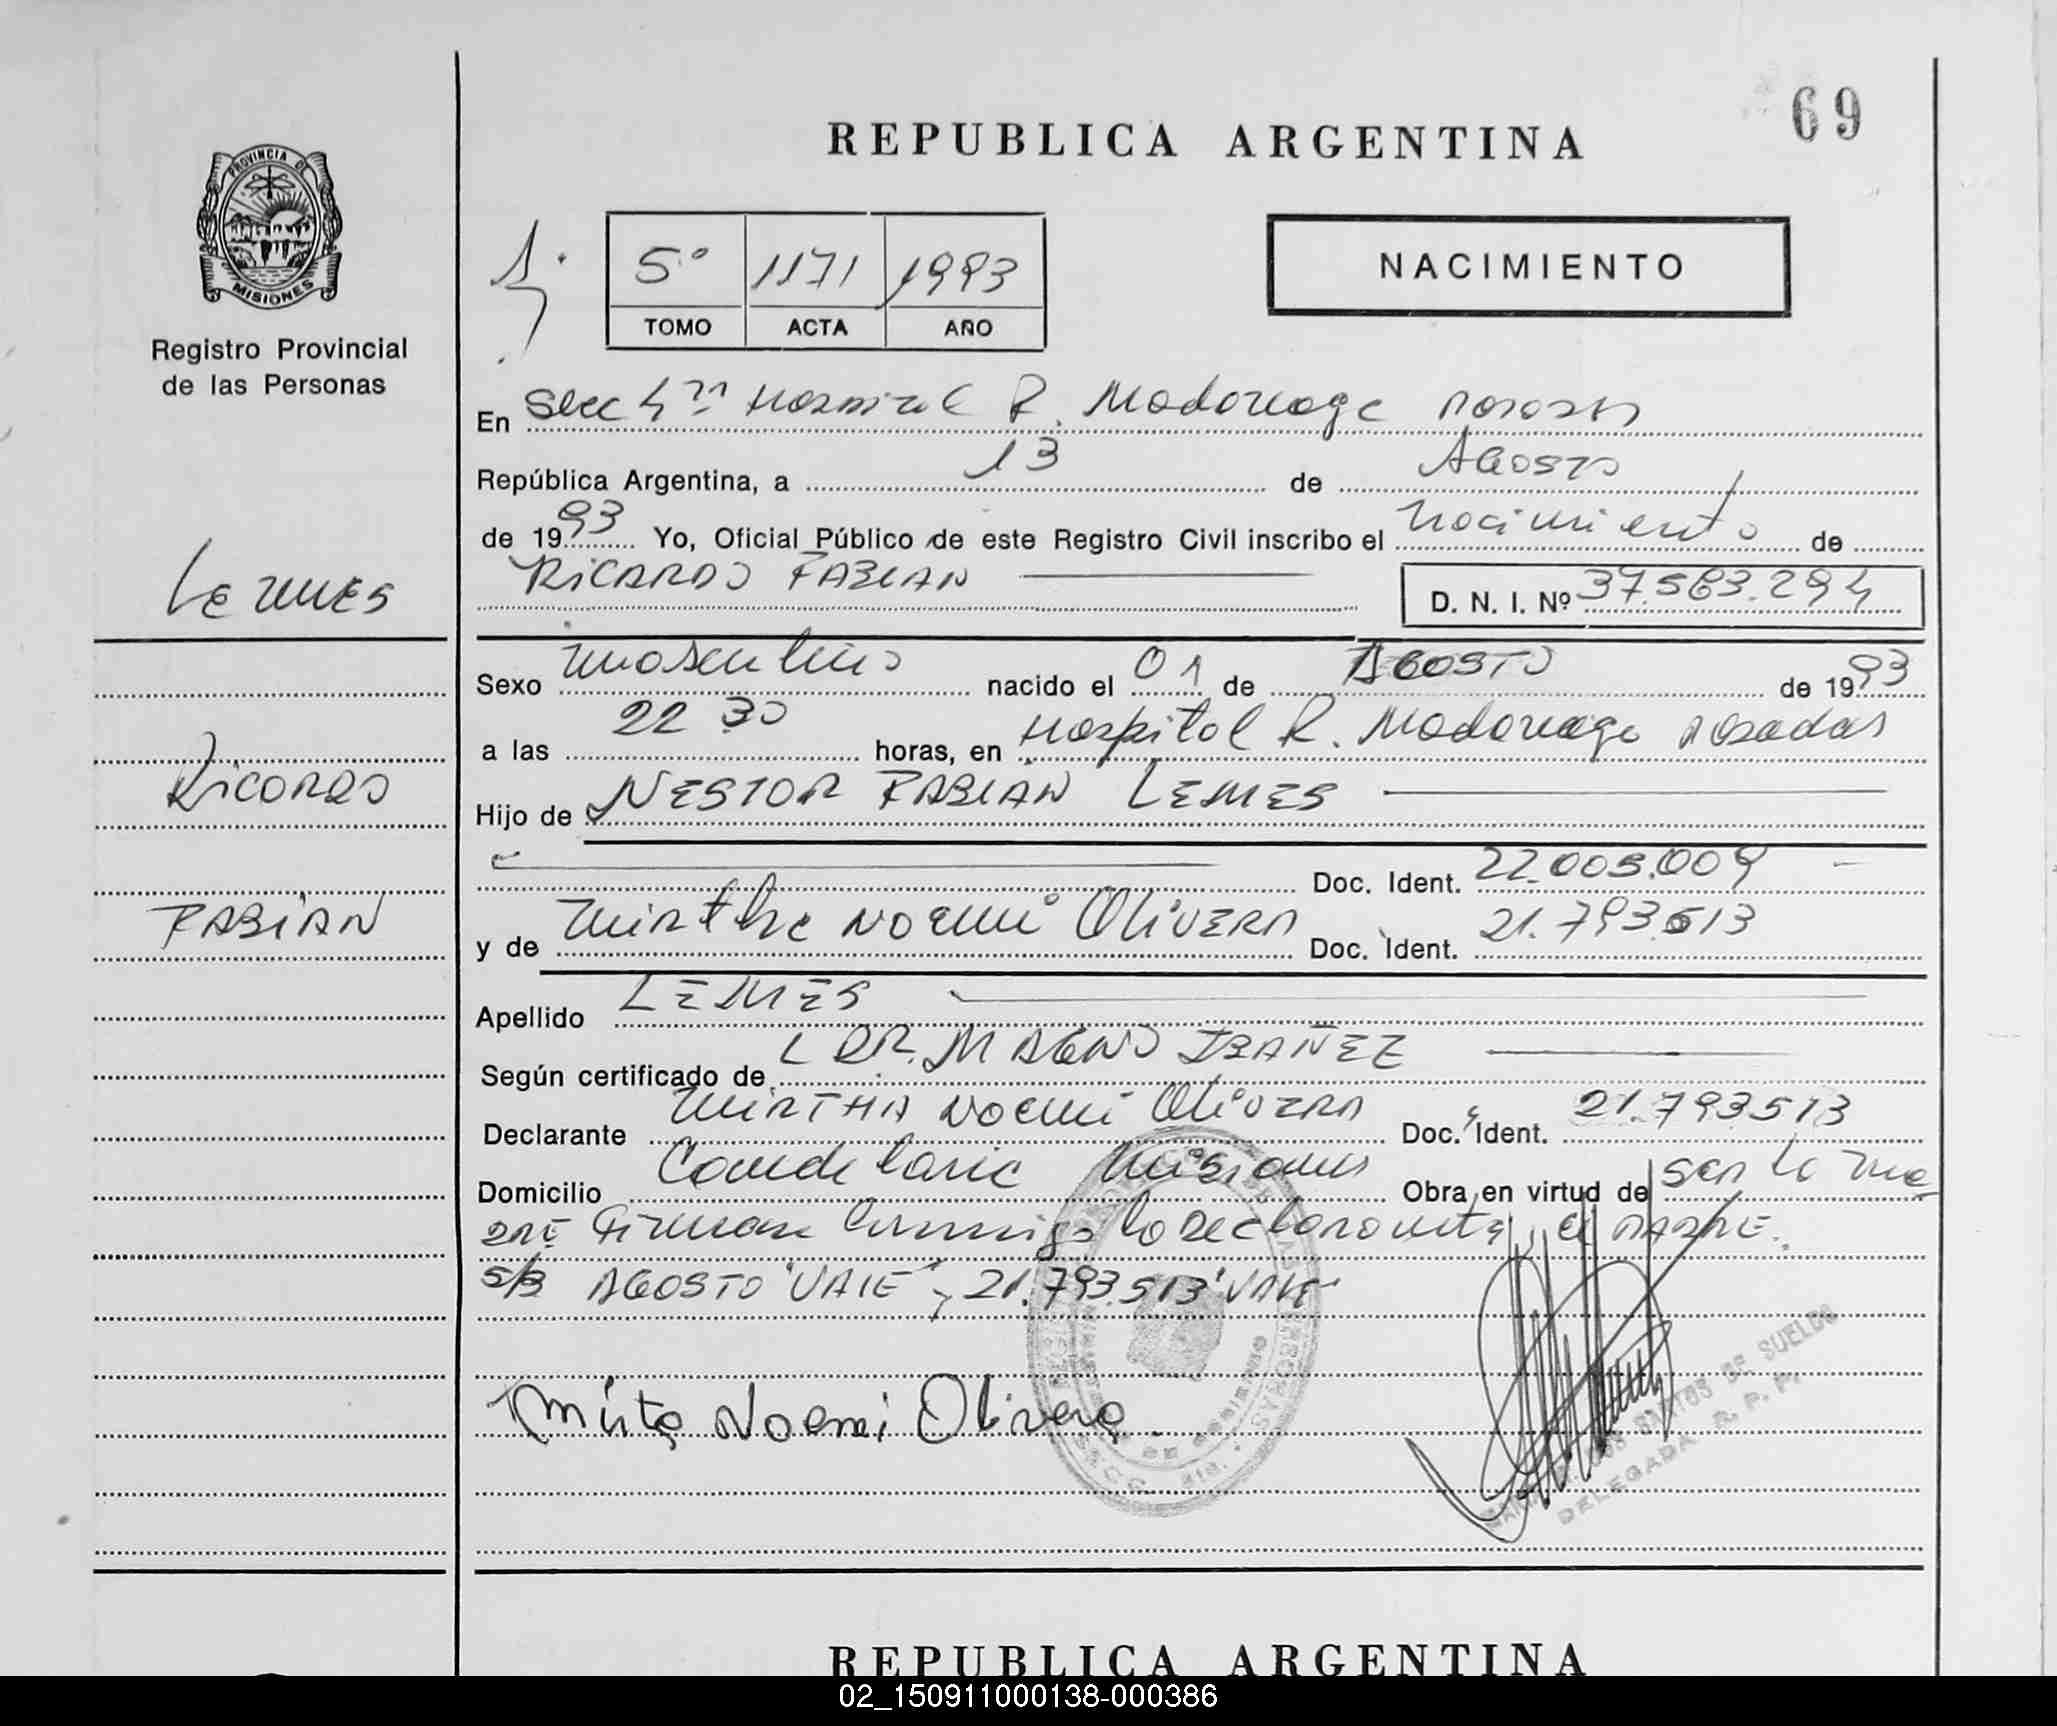 69
REPUBLICA ARGENTINA
PROVINCIA DE
MISIONES
Registro Provincial
de las Personas
5º 1171 1993
TOMO ACTA AÑO
NACIMIENTO
En Secc 4ta Hospital R. Madariaga Posadas
República Argentina, a 13 de Agosto
de 1993 Yo, Oficial Público de este Registro Civil inscribo el nacimiento de
RICARDO FABIAN
D. N. I. Nº 37.583.294
Lemes
Ricardo
FABIAN
Sexo masculino nacido el 01 de AGOSTO de 1993
a las 22 30 horas, en Hospital R. Madariaga Posadas
Hijo de NESTOR FABIAN LEMES
Doc. Ident. 22.005.009
y de Mirtha Noemi OLIVERA Doc. Ident. 21.793.513
Apellido LEMES
Según certificado de DR. MAGNO IBAÑEZ
Declarante MIRTHA Noemi OLIVERA Doc. Ident. 21.793513
Domicilio Candelaria Misiones Obra en virtud de ser la ma-
dre Firman conmigo la Declarante, el PADRE.
s/b AGOSTO "VALE", 21.793.513 "VALE"
Mirta Noemi Olivera
SANTOS DE SUELDO
DELEGADA R. P. P.
REPUBLICA ARGENTINA
02_150911000138-000386